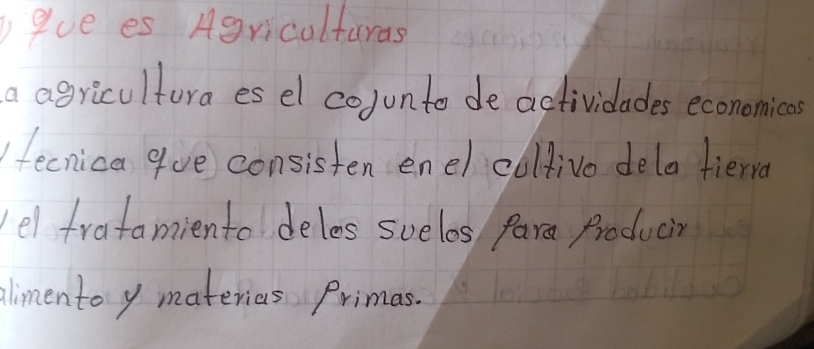 que es Agricolturas
a agricultura es el cojunto de actividades economicas
y tecnica que consisten en el cultivo dela tierra
y el tratamiento delos suelos para producir
alimento y materias primas.